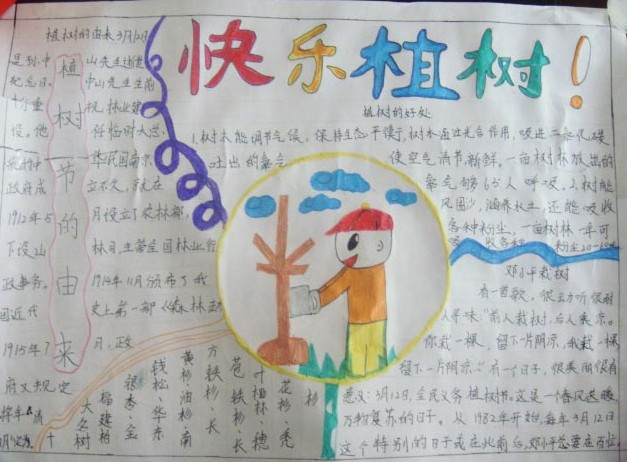 快乐植树!
植树节的由来
植树的由来3月12日
是孙中山先生逝世
纪念日。中山先生生前
十分重视林业建
设。他任临时大总
中华民国南京
政府成立不久,就在
1912年5月设立了农林部,
下设山林司,主管全国林业行
政事务。1914年11月颁布了我
国近代史上第一部《森林法》
1915年7月,政
府又规定
植树的好处
1.树木能调节气候,保持生态平衡,树木通过光合作用,吸进二氧化碳
吐出的氧气 使空气清节,新鲜。一亩树林放出的
氧气够65人呼吸,2.树能
风固沙,涵养水土,还能吸收
各种粉尘,一亩树林一年可
收各种 粉尘20-60
邓小平栽树
有一首歌,很
人寻味"前人栽树,后人乘凉。
你栽一棵,留下一片阴凉,我栽一棵,
留下一片阴凉。"有一个日子,
意义:3月12日,全民义务植树节。这是个春风送暖,
万物复苏的日子。从1982年开始,每年3月12日
这个特别的日子或在此前后,邓小平总要在百忙
十
大名树
福建柏
银杏、金
钱松、华东
黄杉、油杉、南
方铁杉、长
苞铁杉、长
叶榧树、穗
花杉、秃
杉